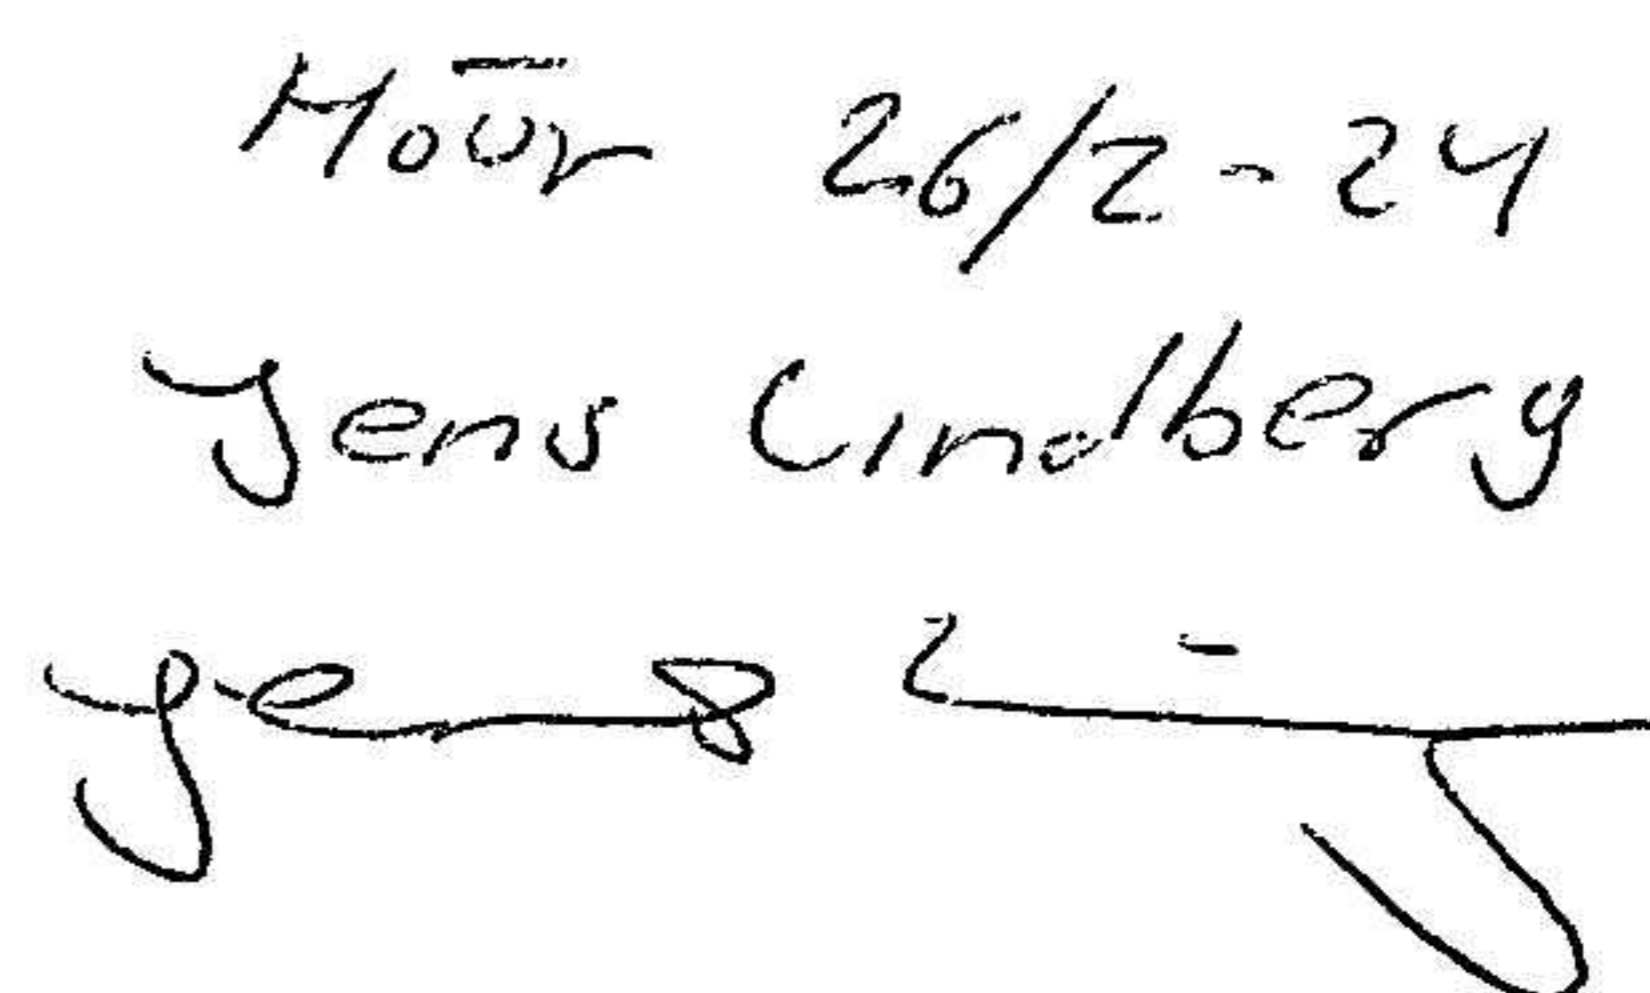 Höör 26/2-24
Jens Lindberg
Jens L